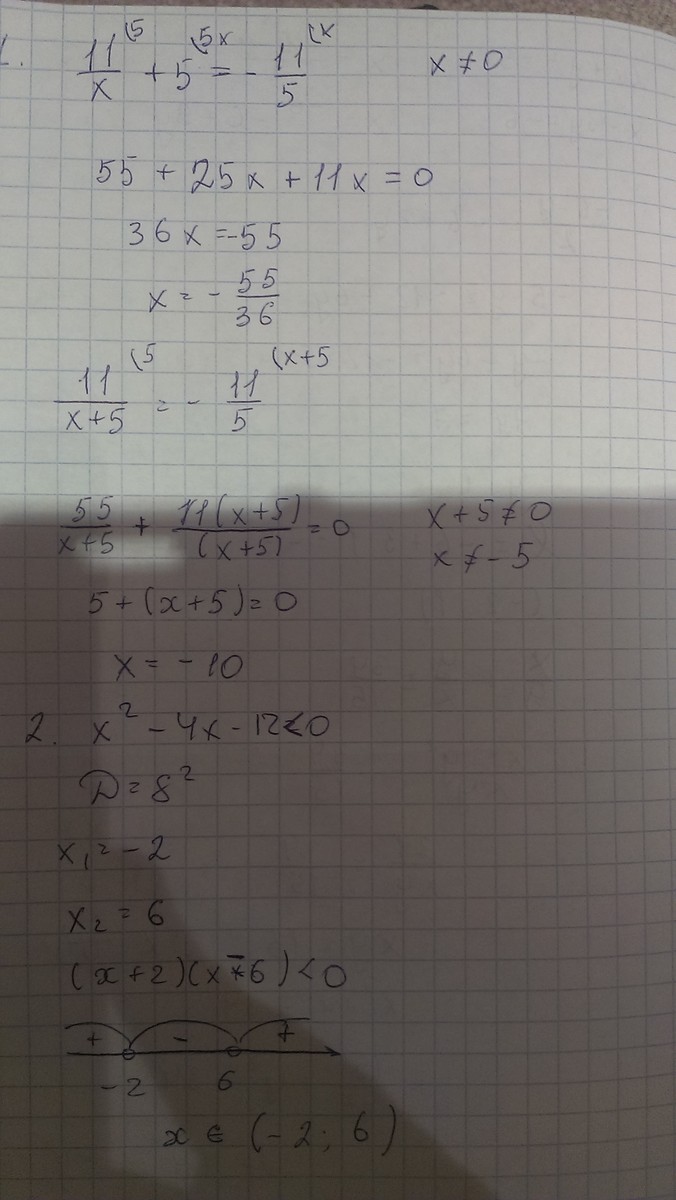 1. 11/x (5 + 5 (5x = - 11/5 (x x ≠ 0
55 + 25x + 11x = 0
36x = -55
x = - 55/36
11/(x+5) (5 = - 11/5 (x+5
55/(x+5) + 11(x+5)/(x+5) = 0 x + 5 ≠ 0
x ≠ - 5
5 + (x+5) = 0
x = - 10
2. x² - 4x - 12 < 0
D = 8²
x₁ = - 2
x₂ = 6
(x+2)(x-6) < 0
+ - +
-2 6
x ∈ (-2; 6)